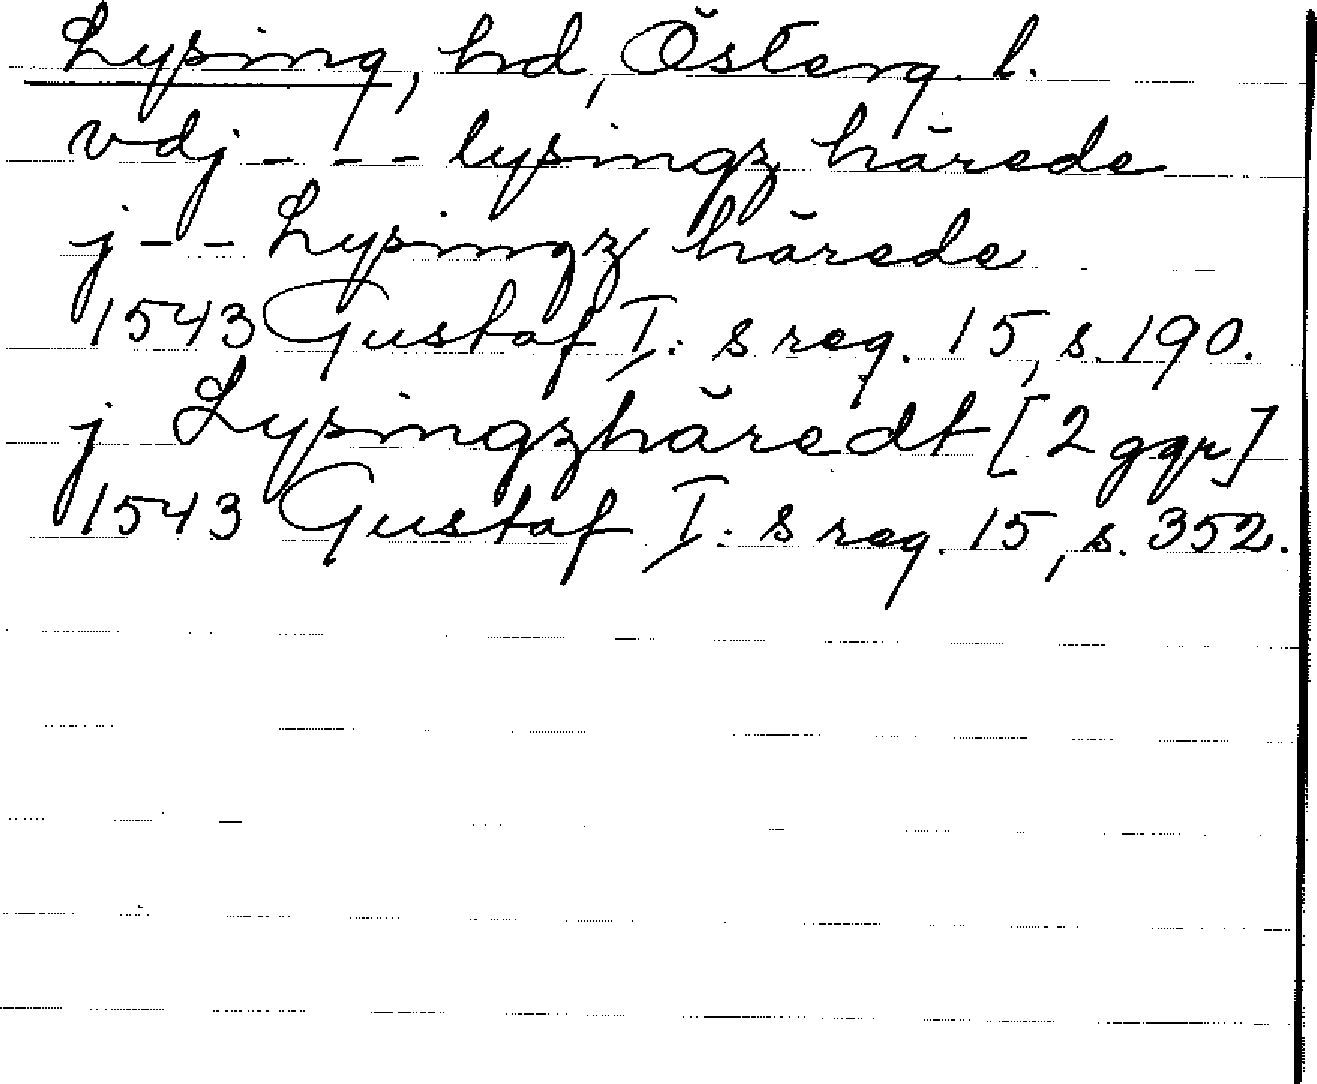 Lysing, hd, Österg. l.
vdj - - - lysingz härede
j - - Lysingz härede
1543 Gustaf I: s reg. 15, s. 190.
j Lysingzhäredt [2 ggr]
1543 Gustaf I: s reg. 15, s. 352.